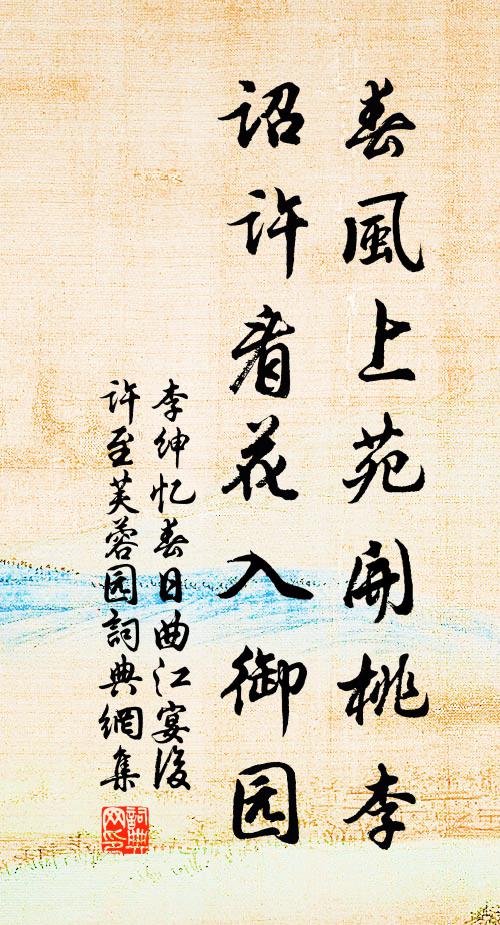 春風上苑開桃李
詔许看花入御园
李紳忆春日曲江宴後
许至芙蓉园詞典網集